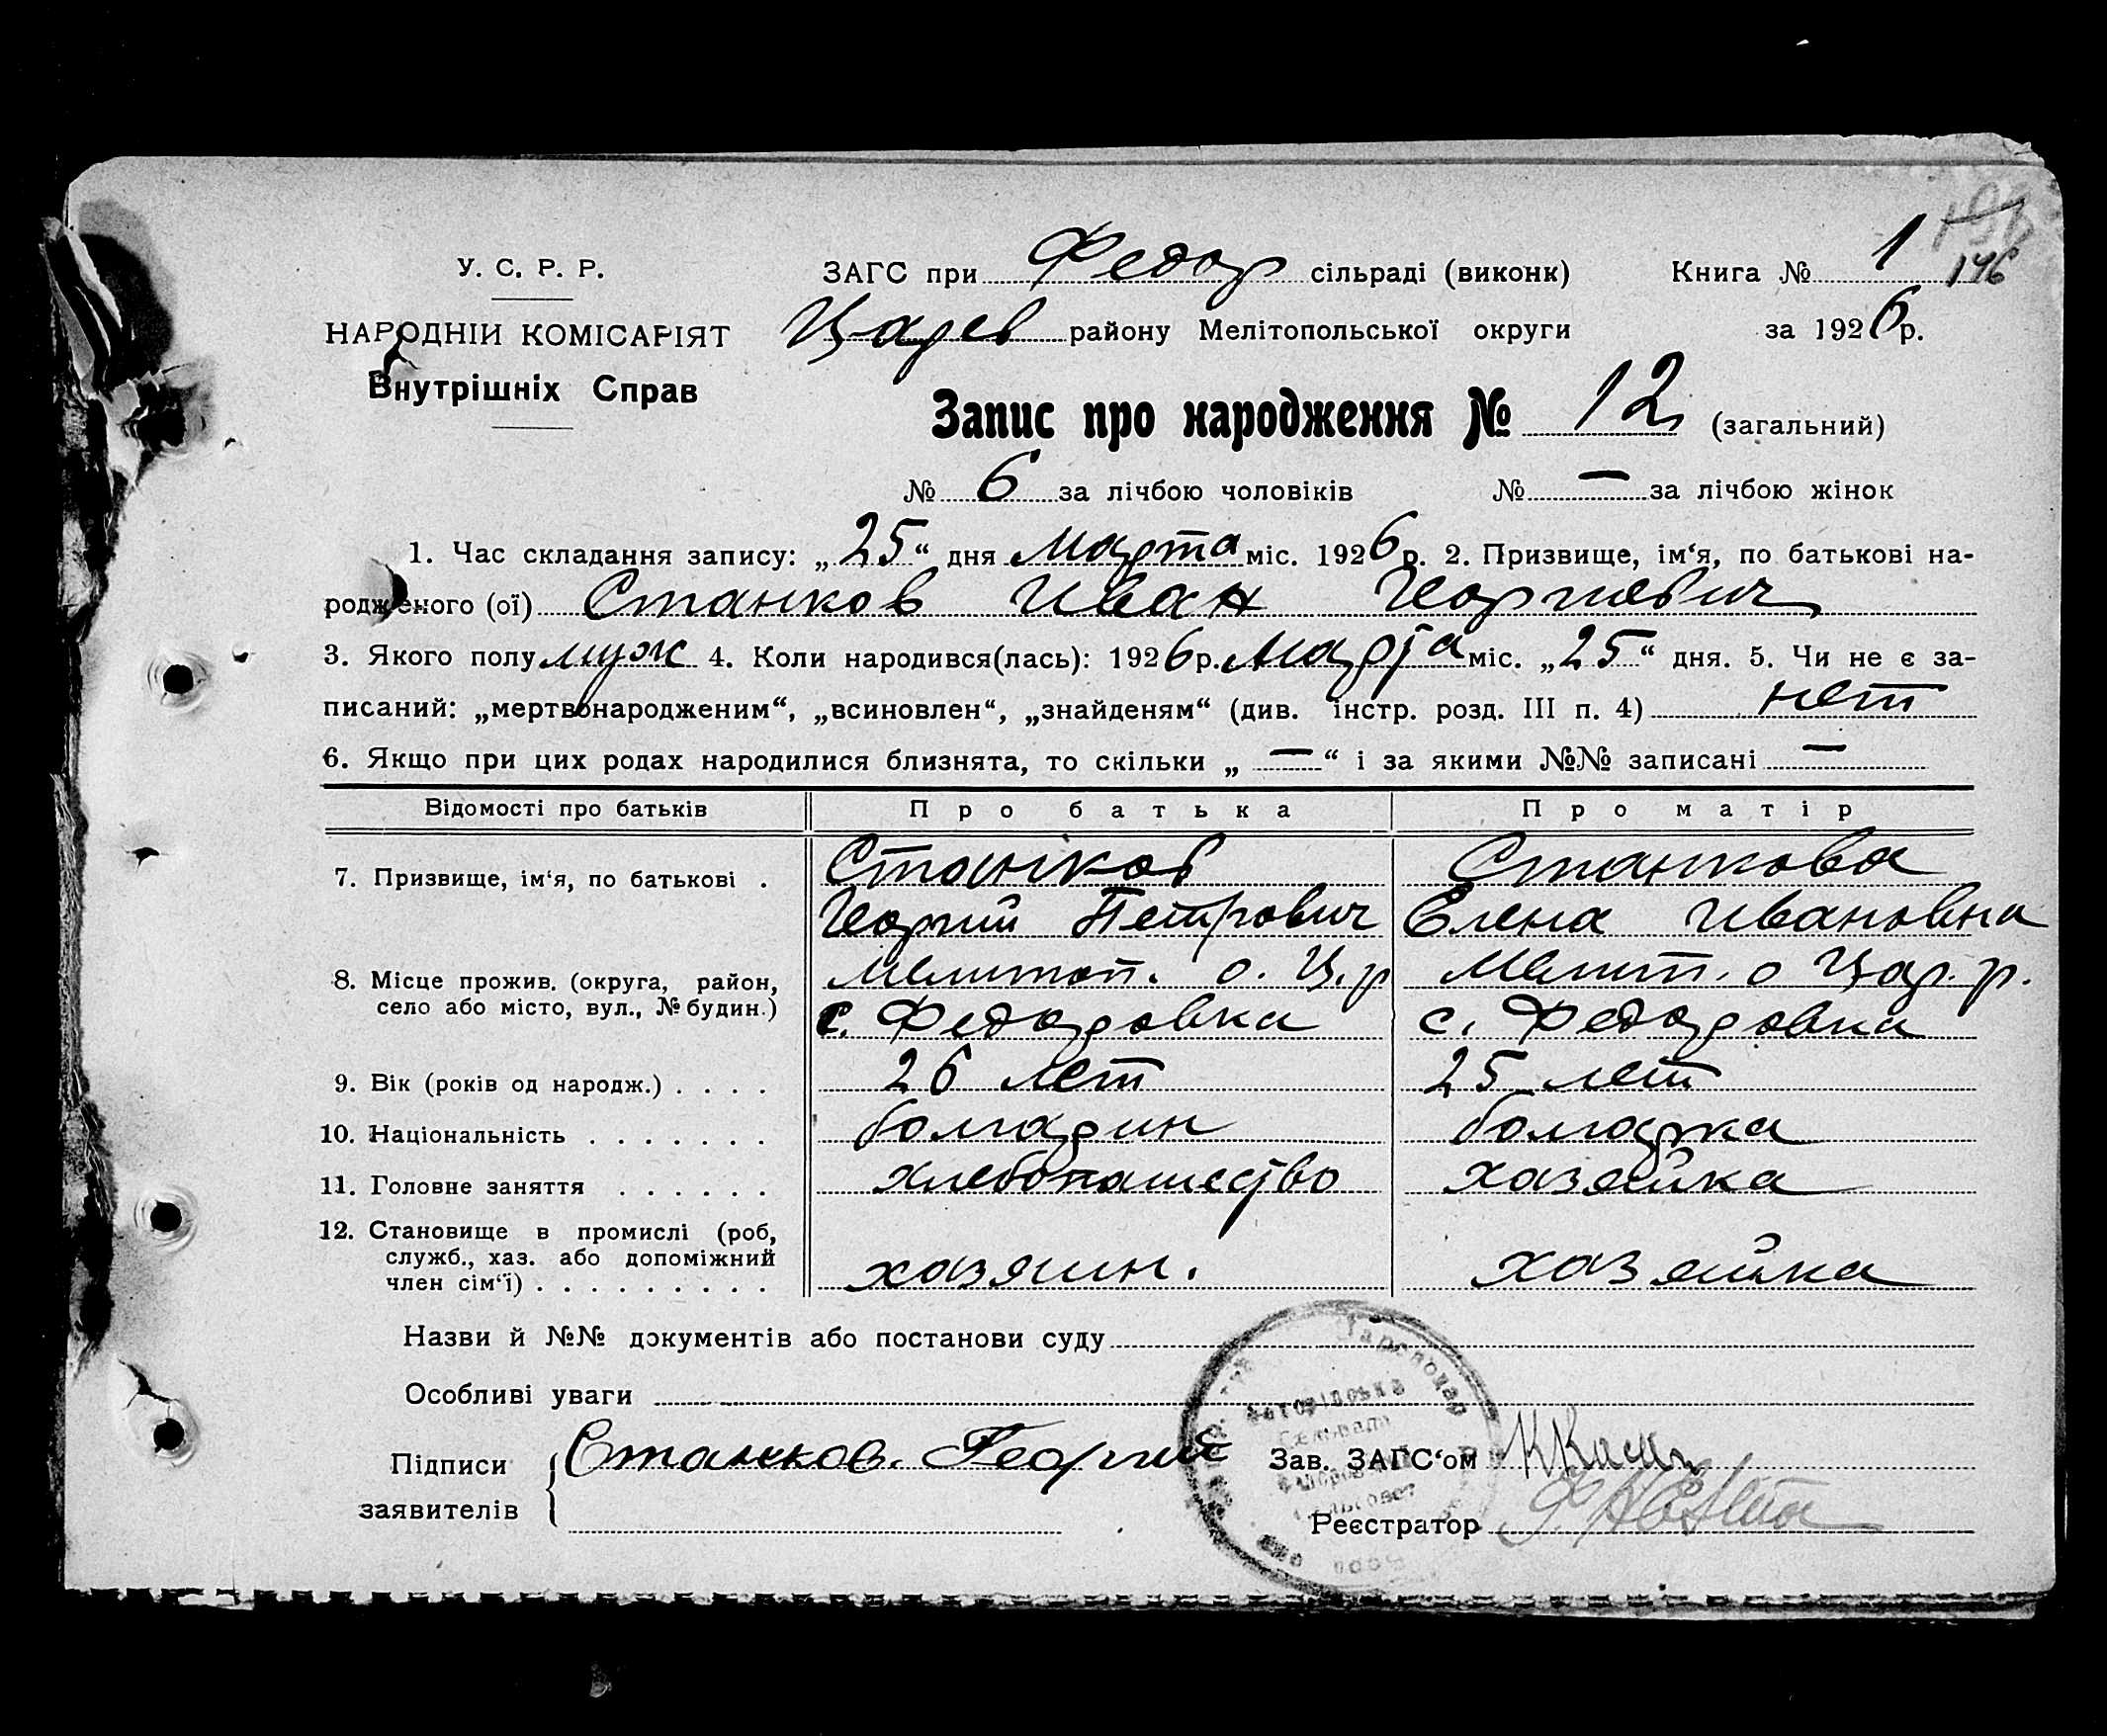 146
У. С. Р. Р.
ЗАГС при Федор сільраді (виконк) Книга № 1
НАРОДНІЙ КОМІСАРІЯТ
Царев району Мелітопольської округи за 1926 р.
Внутрішніх Справ
Запис про народження № 12 (загальний)
№ 6 за лічбою чоловіків № — за лічбою жінок
1. Час складання запису: „25“ дня Марта міс. 1926 р. 2. Призвище, ім‘я, по батькові на-
родженого (ої) Станков Иван Георгиевич
3. Якого полу муж 4. Коли народився(лась): 1926 р. Марта міс. „25“ дня. 5. Чи не є за-
писаний: „мертвонародженим“, „всиновлен“, „знайденям“ (див. інстр. розд. III п. 4) нет
6. Якщо при цих родах народилися близнята, то скільки „—“ і за якими №№ записані —
Відомості про батьків Про батька Про матір
7. Призвище, ім‘я, по батькові . Станков Станкова
Георгий Петрович Елена Ивановна
8. Місце прожив. (округа, район, Мелитоп. о. Ц. р Мелит. о Цар. р.
село або місто, вул., № будин.) с. Федоровка с. Федоровка
9. Вік (років од народж.) . . . . 26 лет 25 лет
10. Національність . . . . . . . болгарин болгарка
11. Головне заняття . . . . . . хлебопашество хазяйка
12. Становище в промислі (роб,
служб., хаз. або допоміжний
член сім‘ї) . . . . . . . . . хазяин. хазяйка
Назви й №№ документів або постанови суду
Особливі уваги
Підписи
заявителів
Станков. Георгий
Зав. ЗАГС‘ом
Реєстратор